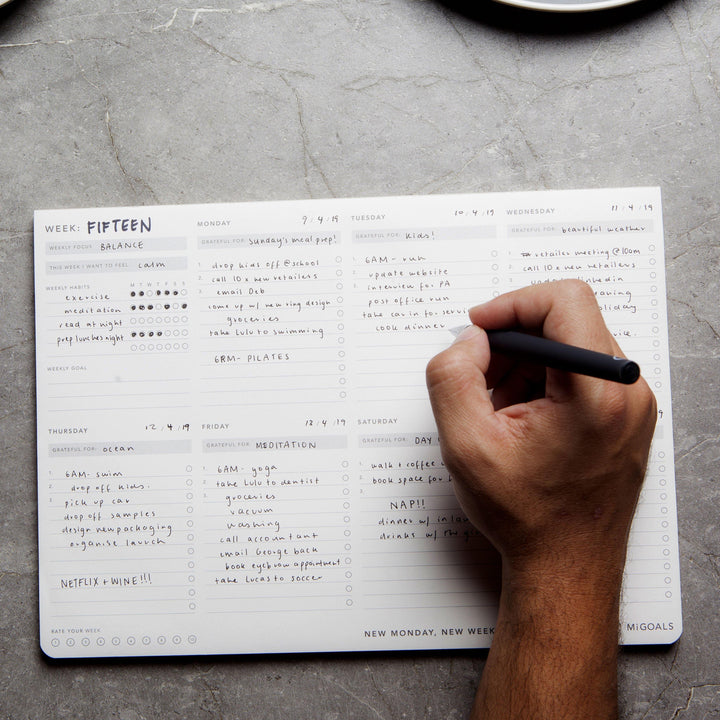 WEEK: FIFTEEN
WEEKLY FOCUS: BALANCE
THIS WEEK I WANT TO FEEL: calm
WEEKLY HABITS
M T W T F S S
exercise
meditation
read at night
prep lunches night
WEEKLY GOAL
MONDAY 9/4/19
GRATEFUL FOR: Sunday's meal prep!
1. drop kids off @school
2. call 10 x new retailers
3. email Deb
come up w/ new ring design
groceries
take Lulu to swimming
6PM- PILATES
TUESDAY 10/4/19
GRATEFUL FOR: Kids!
1. 6AM- run
2. update website
3. interview for PA
post office run
take car in for
cook dinner
WEDNESDAY 11/4/19
GRATEFUL FOR: beautiful weather
1. retailer meeting @10am
2. call 10 x new retailers
THURSDAY 12/4/19
GRATEFUL FOR: ocean
1. 6AM- swim
2. drop off kids.
3. pick up car
drop off samples
design new packaging
organise launch
NETFLIX + WINE!!!
FRIDAY 13/4/19
GRATEFUL FOR: MEDITATION
1. 6AM- yoga
2. take Lulu to dentist
3. groceries
vacuum
washing
call accountant
email George back
book eyebrow appointment
take Lucas to soccer
SATURDAY
GRATEFUL FOR: DAY
1. walk + coffee
2. book space for
3.
NAP!!
dinner w/ in
drinks w/
RATE YOUR WEEK
1 2 3 4 5 6 7 8 9 10
NEW MONDAY, NEW WEEK
MiGOALS